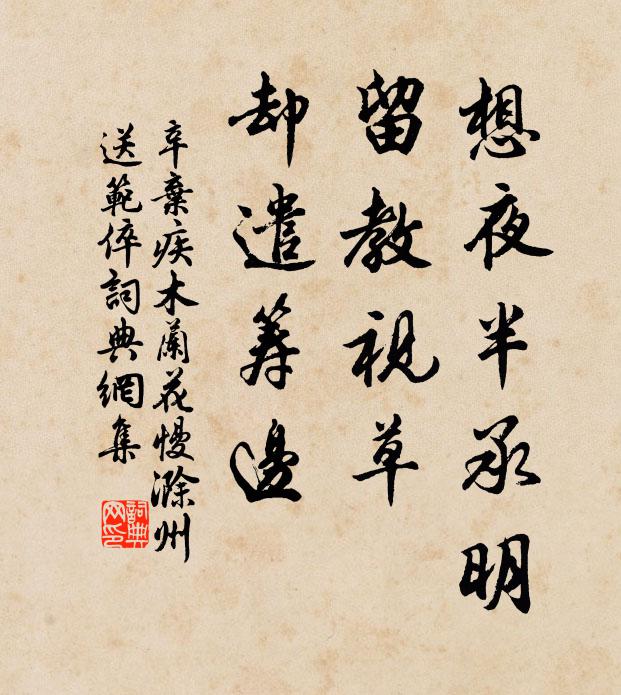 想夜半承明
留教視草
却遣筹邊
辛棄疾木蘭花慢滁州
送範倅詞典網集
詞典
网印